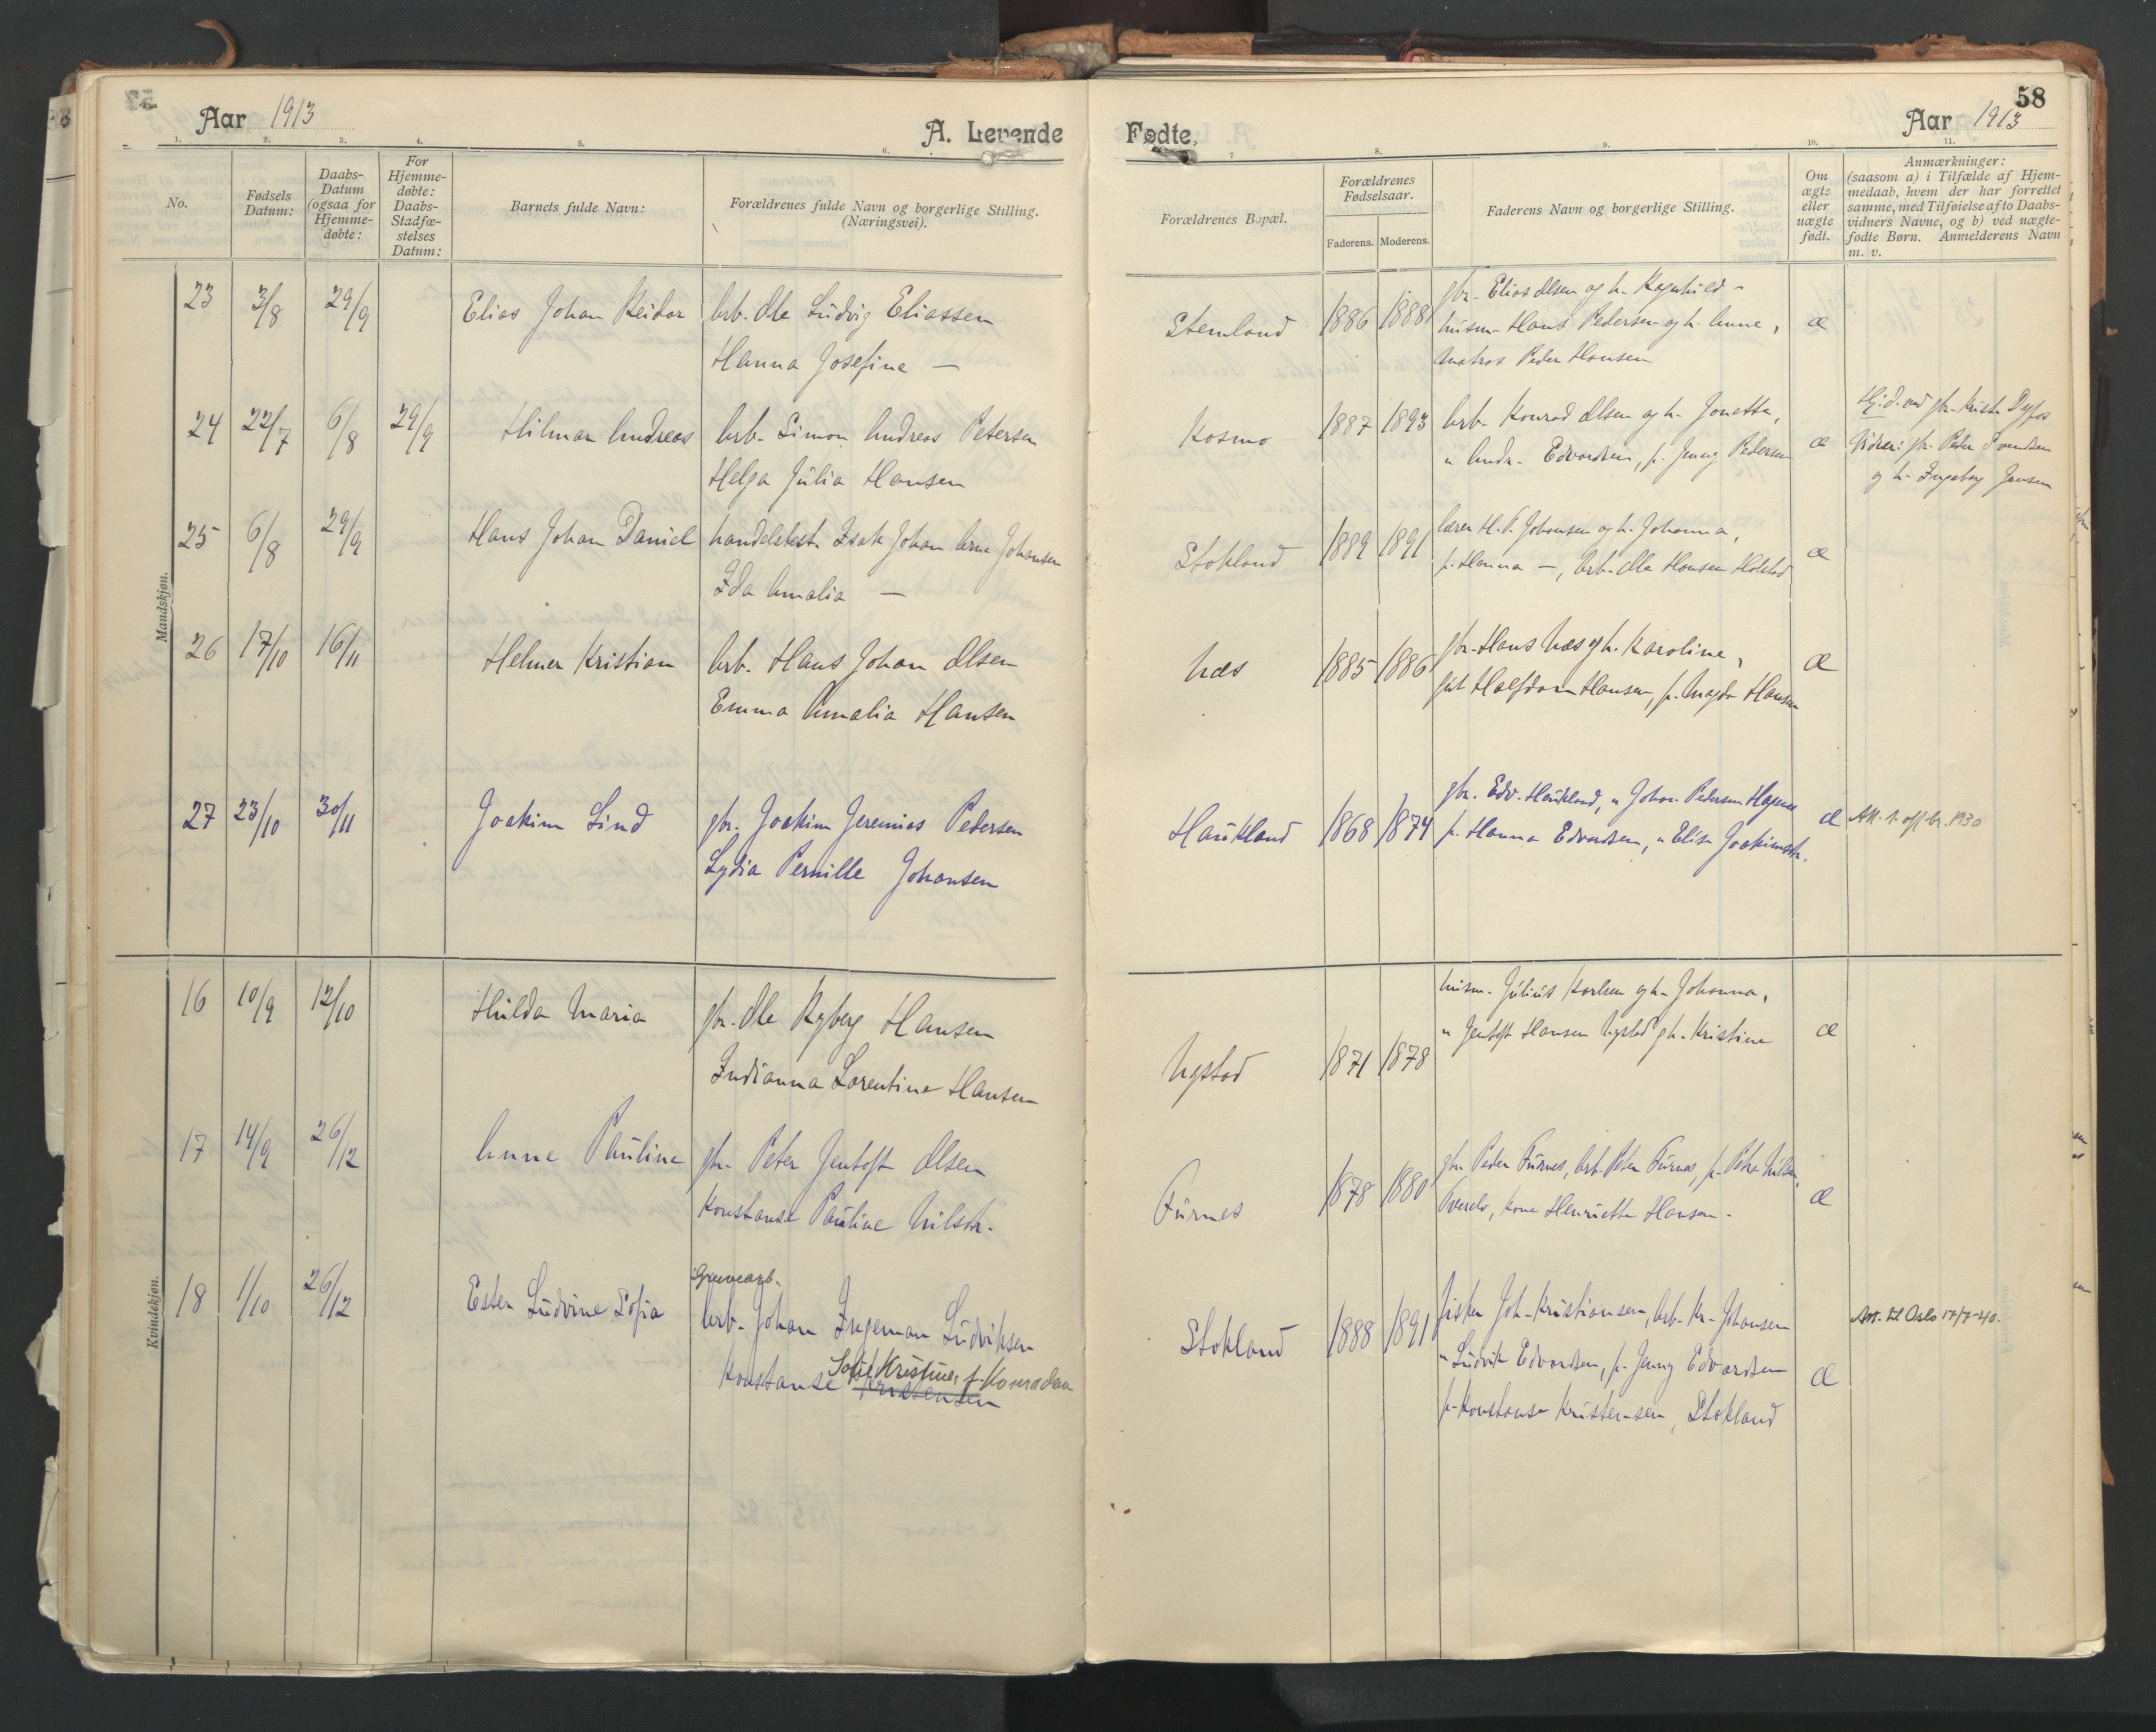 Aar 1913
A. Levende
1. 2. 3. 4. 5. 6.
No.
Fødsels Datum:
Daabs-Datum (ogsaa for Hjemme-døbte:
For Hjemme-døbte: Daabs-Stadfæ-stelses Datum:
Barnets fulde Navn:
Forældrenes fulde Navn og borgerlige Stilling. (Næringsvei).
Mandskjøn.
23 3/8 29/9 Elias Johan Reidar arb. Ole Ludvig Eliassen
Hanna Josefine —
24 22/7 6/8 29/9 Hilmar Andreas arb. Simon Andreas Petersen
Helga Julia Hansen
25 6/8 29/9 Hans Johan Daniel handelsbest. Isak Johan Arne Johansen
Ida Amalia —
26 17/10 16/11 Helmer Kristian arb. Hans Johan Olsen
Emma Amalia Hansen
27 23/10 30/11 Joakim Lind gbr. Joakim Jeremias Pedersen
Lydia Pernille Johansen
Kvindekjøn.
16 10/9 12/10 Hilda Maria gbr. Ole Ryberg Hansen
Indianna Lorentine Hansen
17 14/9 26/12 Anne Pauline gbr. Peter Jentoft Olsen
Konstanse Pauline Nilsdtr.
Gruvearb.
18 1/10 26/12 Ester Ludvine Sofia arb. Johan Ingeman Ludviksen
Sofie Kristine, f. Konradsen
Konstanse Kristensen
58
Fødte,
Aar 1913
7 8. 9. 10. 11.
Forældrenes Bopæl.
Forældrenes Fødselsaar.
Faderens. Moderens.
Faderens Navn og borgerlige Stilling.
Om ægte eller uægte født.
Anmærkninger:
(saasom a) i Tilfælde af Hjem-
medaab, hvem der har forrettet
samme, med Tilføielse af to Daabs-
vidners Navne, og b) ved uægte-
fødte Børn. Anmelderens Navn
m. v.
gbr. Elias Olsen og h. Ragnhild -
Stemland 1886 1888 husm. Hans Pedersen og h. Anne, æ
matros Peder Hansen
Kosmo 1887 1893 arb. Konrad Olsen og h. Jonetta,
" Andr. Edvardsen, p. Jenny Pedersen æ
Hj.d. ved gbr. Krist.
Vidner: gbr. Peder Svendsen
og h. Ingeborg Jensen
Stokland 1889 1891 lærer H. P. Johansen og h. Johanna, æ
p. Hanna —, arb. Ole Hansen Holstad
Næs 1885 1886 gbr. Hans Næs og h. Karoline, æ
fisk. Halfdan Hansen, p. Magda Hansen
gbr. Edv. Haukland, " Johan Pedersen
Haukland 1868 1874 p. Hanna Edvardsen, " Elise Joakimsdtr. æ 1930
husm. Julius Karlsen og h. Johanna,
" Jentoft Hansen Nystad og h. Kristine æ
Nystad 1871 1878
gbr. Peder Furnes, arb. Peter Furnes, p. Petra Nilsen,
Furnes 1878 1880 kone Henriette Hansen - æ
fisker Joh. Kristiansen, arb. Kr. Johansen
Stokland 1888 1891 " Ludvik Edvardsen, p. Jenny Edvardsen æ
p. Konstanse Kristensen, Stokland
Att. til Oslo 17/7-40.